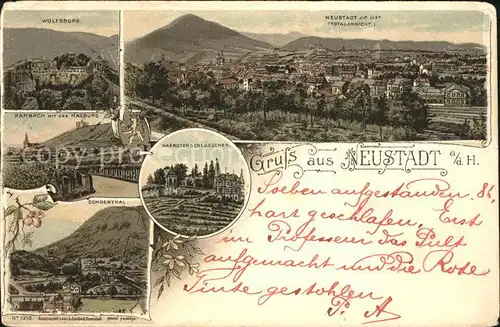 WOLFSBURG.
NEUSTADT A/D H'DT
(TOTALANSICHT.)
HAMBACH MIT DER MAXBURG.
HAARDTER SCHLÖSSCHEN
Gruß aus NEUSTADT a/d H.
Soeben aufgestanden. 8h
hart geschlafen. Erst
im Professeur das Pult
aufgemacht und die Rode
Tinte gestohlen
P. A
SCHOENTHAL
No 1218.